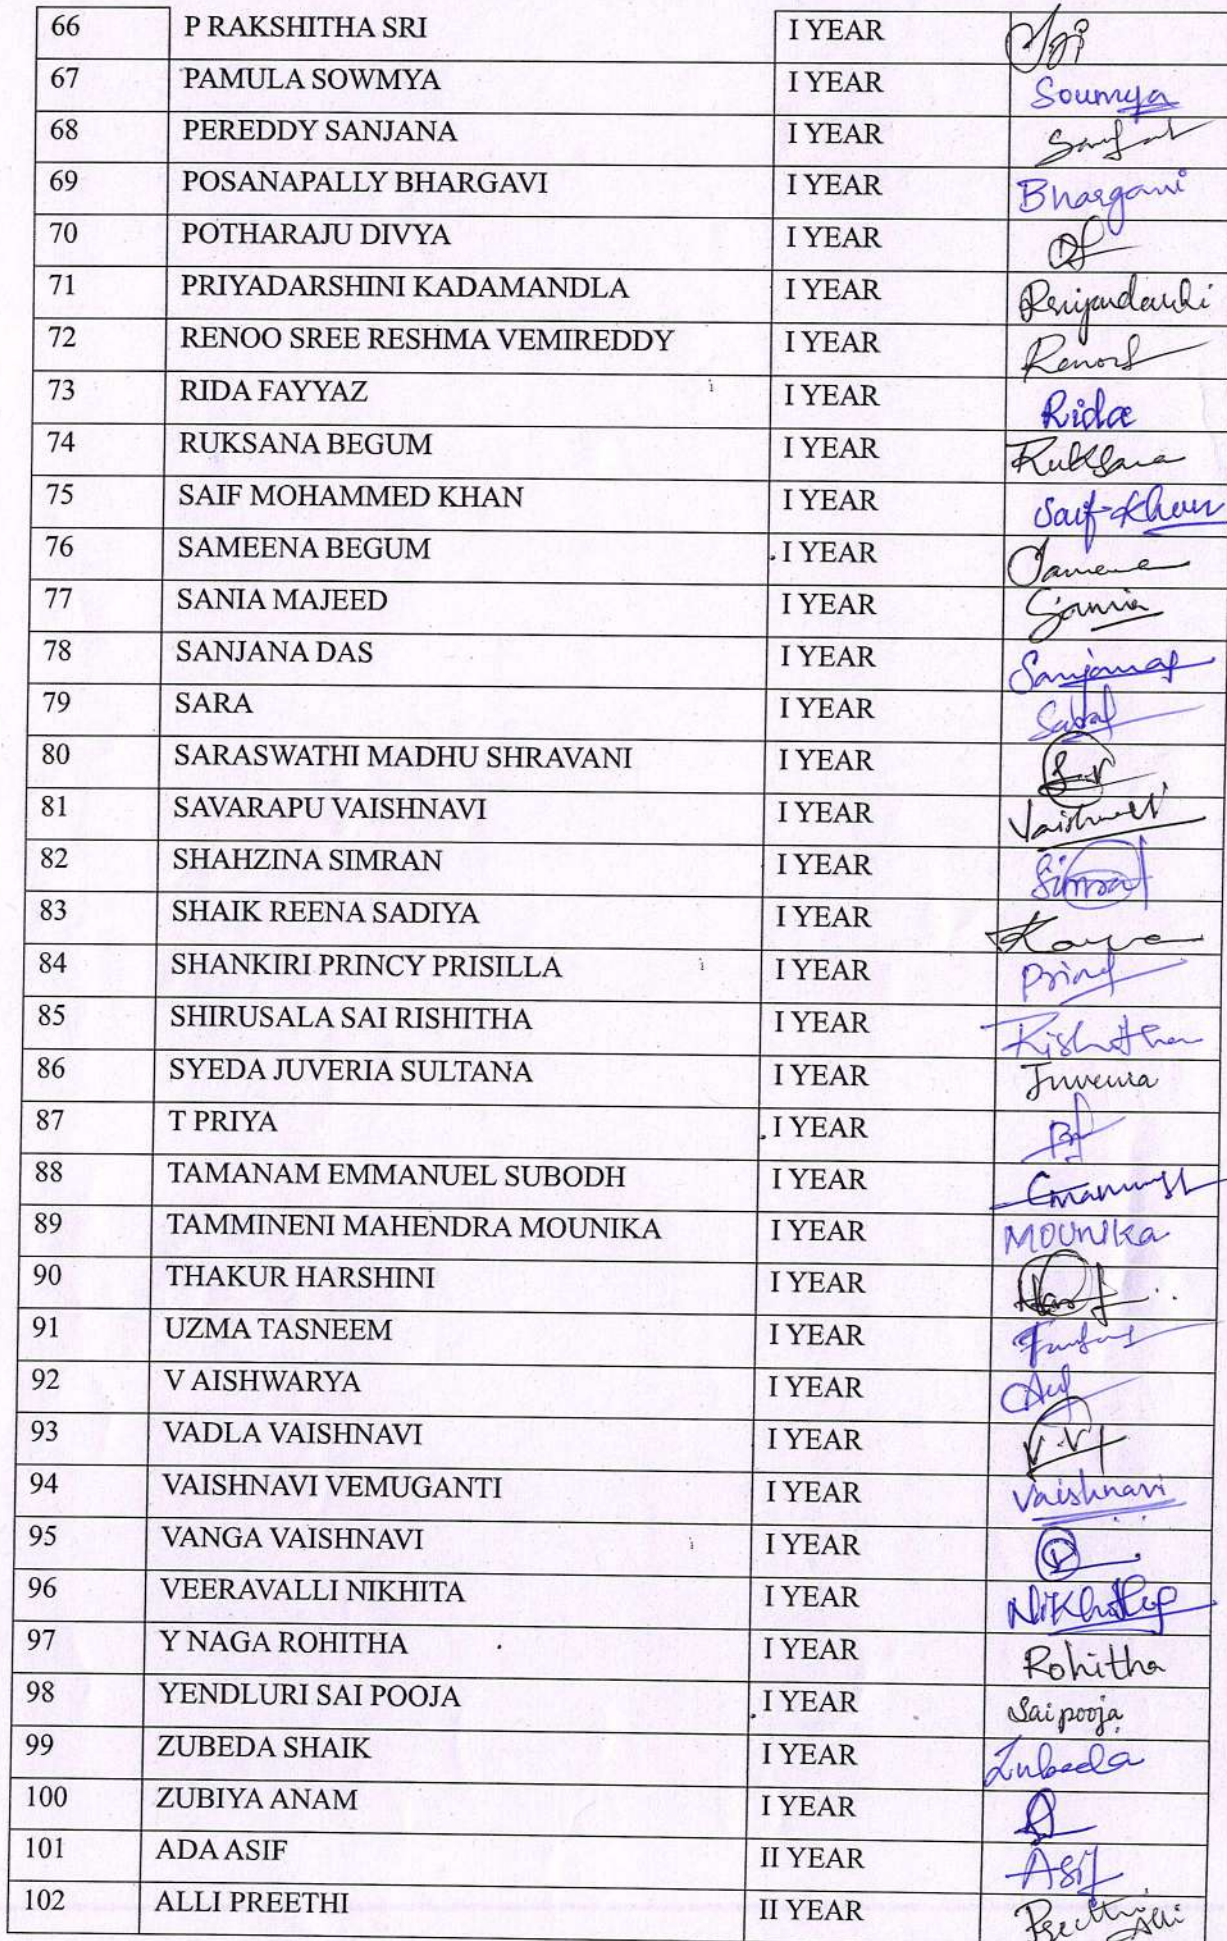 66 P RAKSHITHA SRI I YEAR
67 PAMULA SOWMYA I YEAR Soumya
68 PEREDDY SANJANA I YEAR
69 POSANAPALLY BHARGAVI I YEAR Bhargavi
70 POTHARAJU DIVYA I YEAR
71 PRIYADARSHINI KADAMANDLA I YEAR
72 RENOO SREE RESHMA VEMIREDDY I YEAR
73 RIDA FAYYAZ I YEAR Rida
74 RUKSANA BEGUM I YEAR Ruksana
75 SAIF MOHAMMED KHAN I YEAR Saif Khan
76 SAMEENA BEGUM I YEAR
77 SANIA MAJEED I YEAR Sania
78 SANJANA DAS I YEAR Sanjana
79 SARA I YEAR
80 SARASWATHI MADHU SHRAVANI I YEAR
81 SAVARAPU VAISHNAVI I YEAR Vaishnavi
82 SHAHZINA SIMRAN I YEAR Simran
83 SHAIK REENA SADIYA I YEAR
84 SHANKIRI PRINCY PRISILLA I YEAR
85 SHIRUSALA SAI RISHITHA I YEAR Rishitha
86 SYEDA JUVERIA SULTANA I YEAR Juveria
87 T PRIYA I YEAR
88 TAMANAM EMMANUEL SUBODH I YEAR
89 TAMMINENI MAHENDRA MOUNIKA I YEAR MOUNIKa
90 THAKUR HARSHINI I YEAR
91 UZMA TASNEEM I YEAR
92 V AISHWARYA I YEAR
93 VADLA VAISHNAVI I YEAR V.V
94 VAISHNAVI VEMUGANTI I YEAR Vaishnavi
95 VANGA VAISHNAVI I YEAR
96 VEERAVALLI NIKHITA I YEAR Nikhita
97 Y NAGA ROHITHA I YEAR Rohitha
98 YENDLURI SAI POOJA I YEAR Sai pooja
99 ZUBEDA SHAIK I YEAR Zubeda
100 ZUBIYA ANAM I YEAR
101 ADA ASIF II YEAR Asif
102 ALLI PREETHI II YEAR Preethi Alli